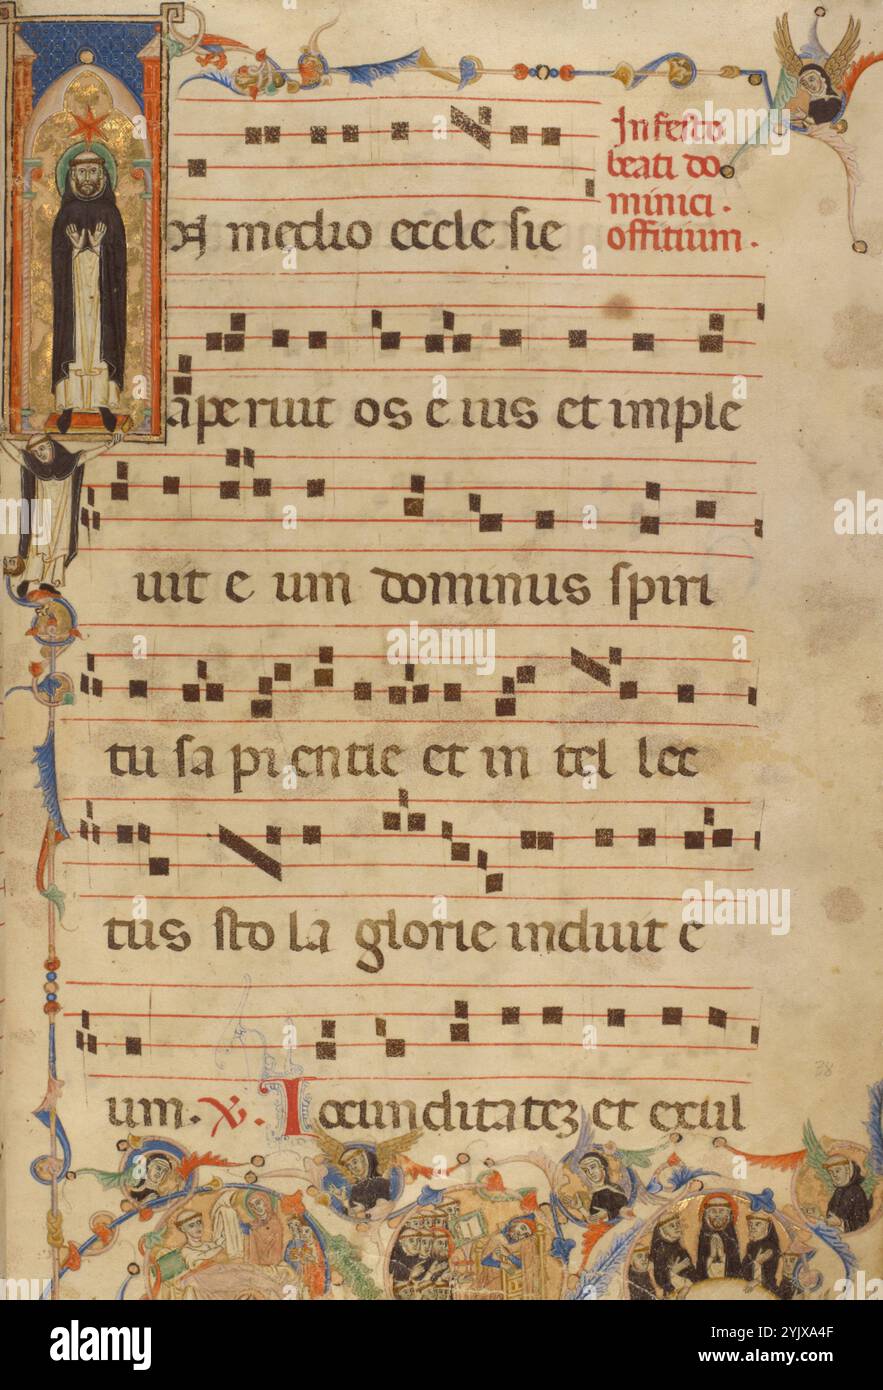 In festo
beati do
minici.
offitium.
medio eccle sie
aperuit os e ius et imple
uit e um dominus spiri
tu sa pi entie et in tel lec
tus sto la glorie induit e
um. V. Iocunditatez et exul
38
alamy
Image ID: 2YJXA4F
www.alamy.com